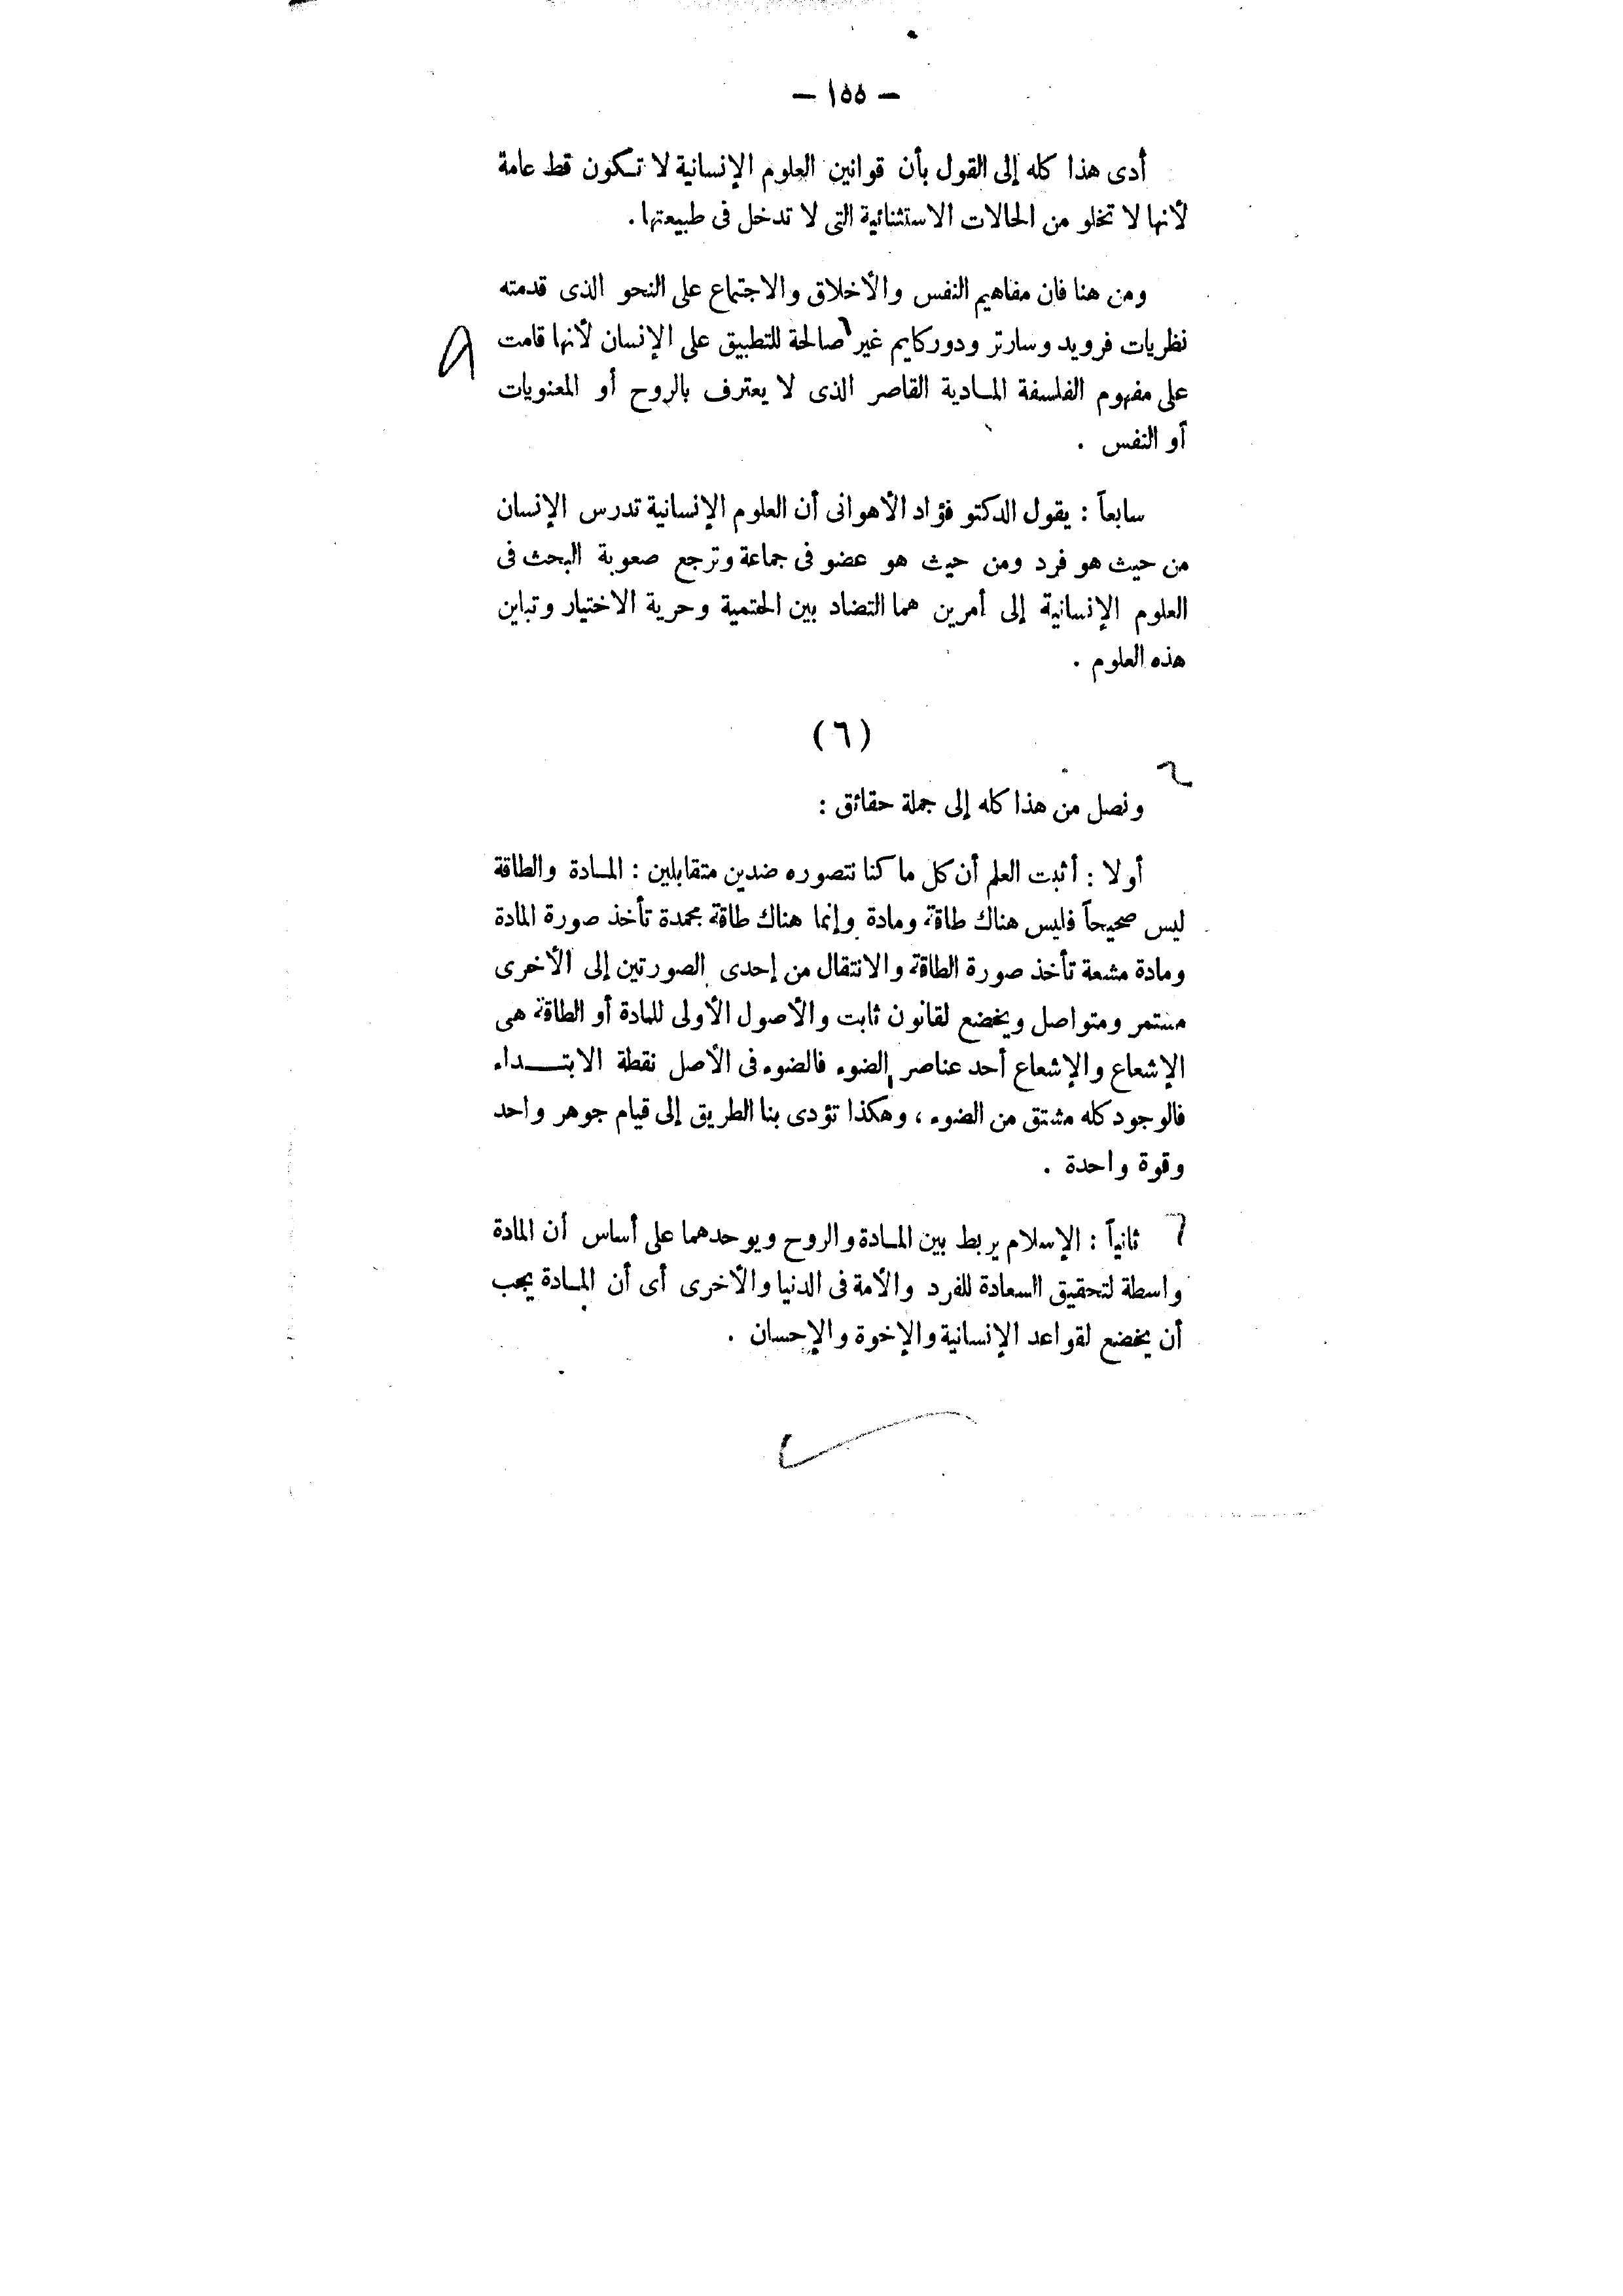 — ١٥٥ —
أدى هذا كله إلى القول بأن قوانين العلوم الإنسانية لا تكون قط عامة
لأنها لا تخلو من الحالات الاستثنائية التى لا تدخل فى طبيعتها .
ومن هنا فان مفاهيم النفس والأخلاق والاجتماع على النحو الذى قدمته
نظريات فرويد وسارتر ودوركايم غير صالحة للتطبيق على الإنسان لأنها قامت
على مفهوم الفلسفة المادية القاصر الذى لا يعترف بالروح أو المعنويات
أو النفس .
سابعاً : يقول الدكتو فؤاد الأهوانى أن العلوم الإنسانية تدرس الإنسان
من حيث هو فرد ومن حيث هو عضو فى جماعة وترجع صعوبة البحث فى
العلوم الإنسانية إلى أمرين هما التضاد بين الحتمية وحرية الاختيار وتباين
هذه العلوم .
(٦)
ونصل من هذا كله إلى جملة حقائق :
أولا : أثبت العلم أن كل ما كنا نتصوره ضدين متقابلين : المادة والطاقة
ليس صحيحاً فليس هناك طاقة ومادة وإنما هناك طاقة مجمدة تأخذ صورة المادة
ومادة مشعة تأخذ صورة الطاقة والانتقال من إحدى الصورتين إلى الأخرى
مستمر ومتواصل ويخضع لقانون ثابت والأصول الأولى للمادة أو الطاقة هى
الإشعاع والإشعاع أحد عناصر الضوء فالضوء فى الأصل نقطة الابتـــداء
فالوجود كله مشتق من الضوء ، وهكذا تؤدى بنا الطريق إلى قيام جوهر واحد
وقوة واحدة .
ثانياً : الإسلام يربط بين المادة والروح ويوحدهما على أساس أن المادة
واسطة لتحقيق السعادة للفرد والأمة فى الدنيا والأخرى أى أن المادة يجب
أن يخضع لقواعد الإنسانية والإخوة والإحسان .